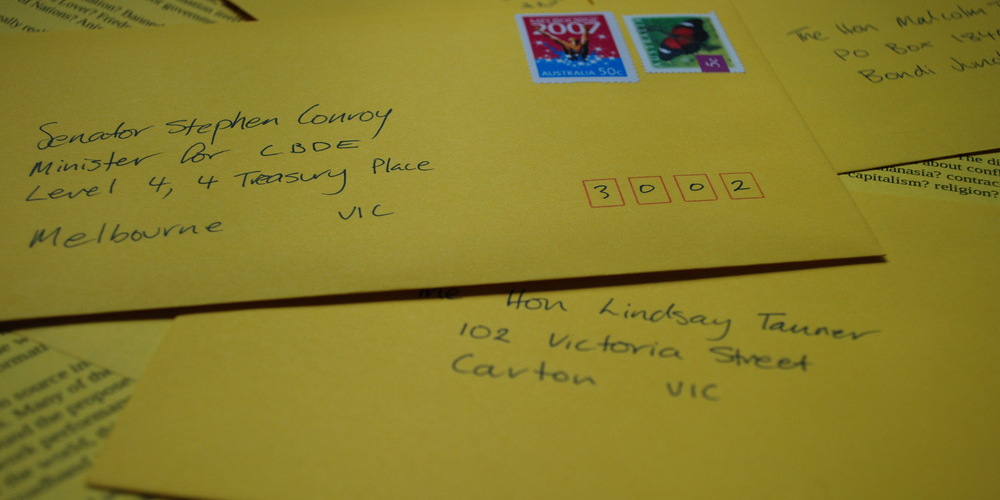 Senator Stephen Conroy
Minister for CBDE
Level 4, 4 Treasury Place
Melbourne VIC
3002
MELBOURNE
2007
AUSTRALIA 50c
The Hon Malcolm
PO Box 184
Bondi Junc
Hon Lindsay Tanner
102 Victoria Street
Carlton VIC
The di
about conf
anasia? contrac
capitalism? religion?
of Nations?
source in
Many of the
around the propos
work performan
the world,